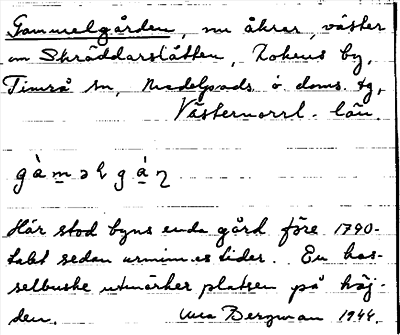 Gammelgården, nu åkrar, väster
om Skräddarslåtten, Lokens by,
Timrå sn, Medelpads ö. doms. tg,
Västernorrl. län.
gàməlgáɳ
Här stod byns enda gård före 1790-
talet sedan urminnes tider. En has-
selbuske utmärker platsen på höj-
den. Bergman 1944.